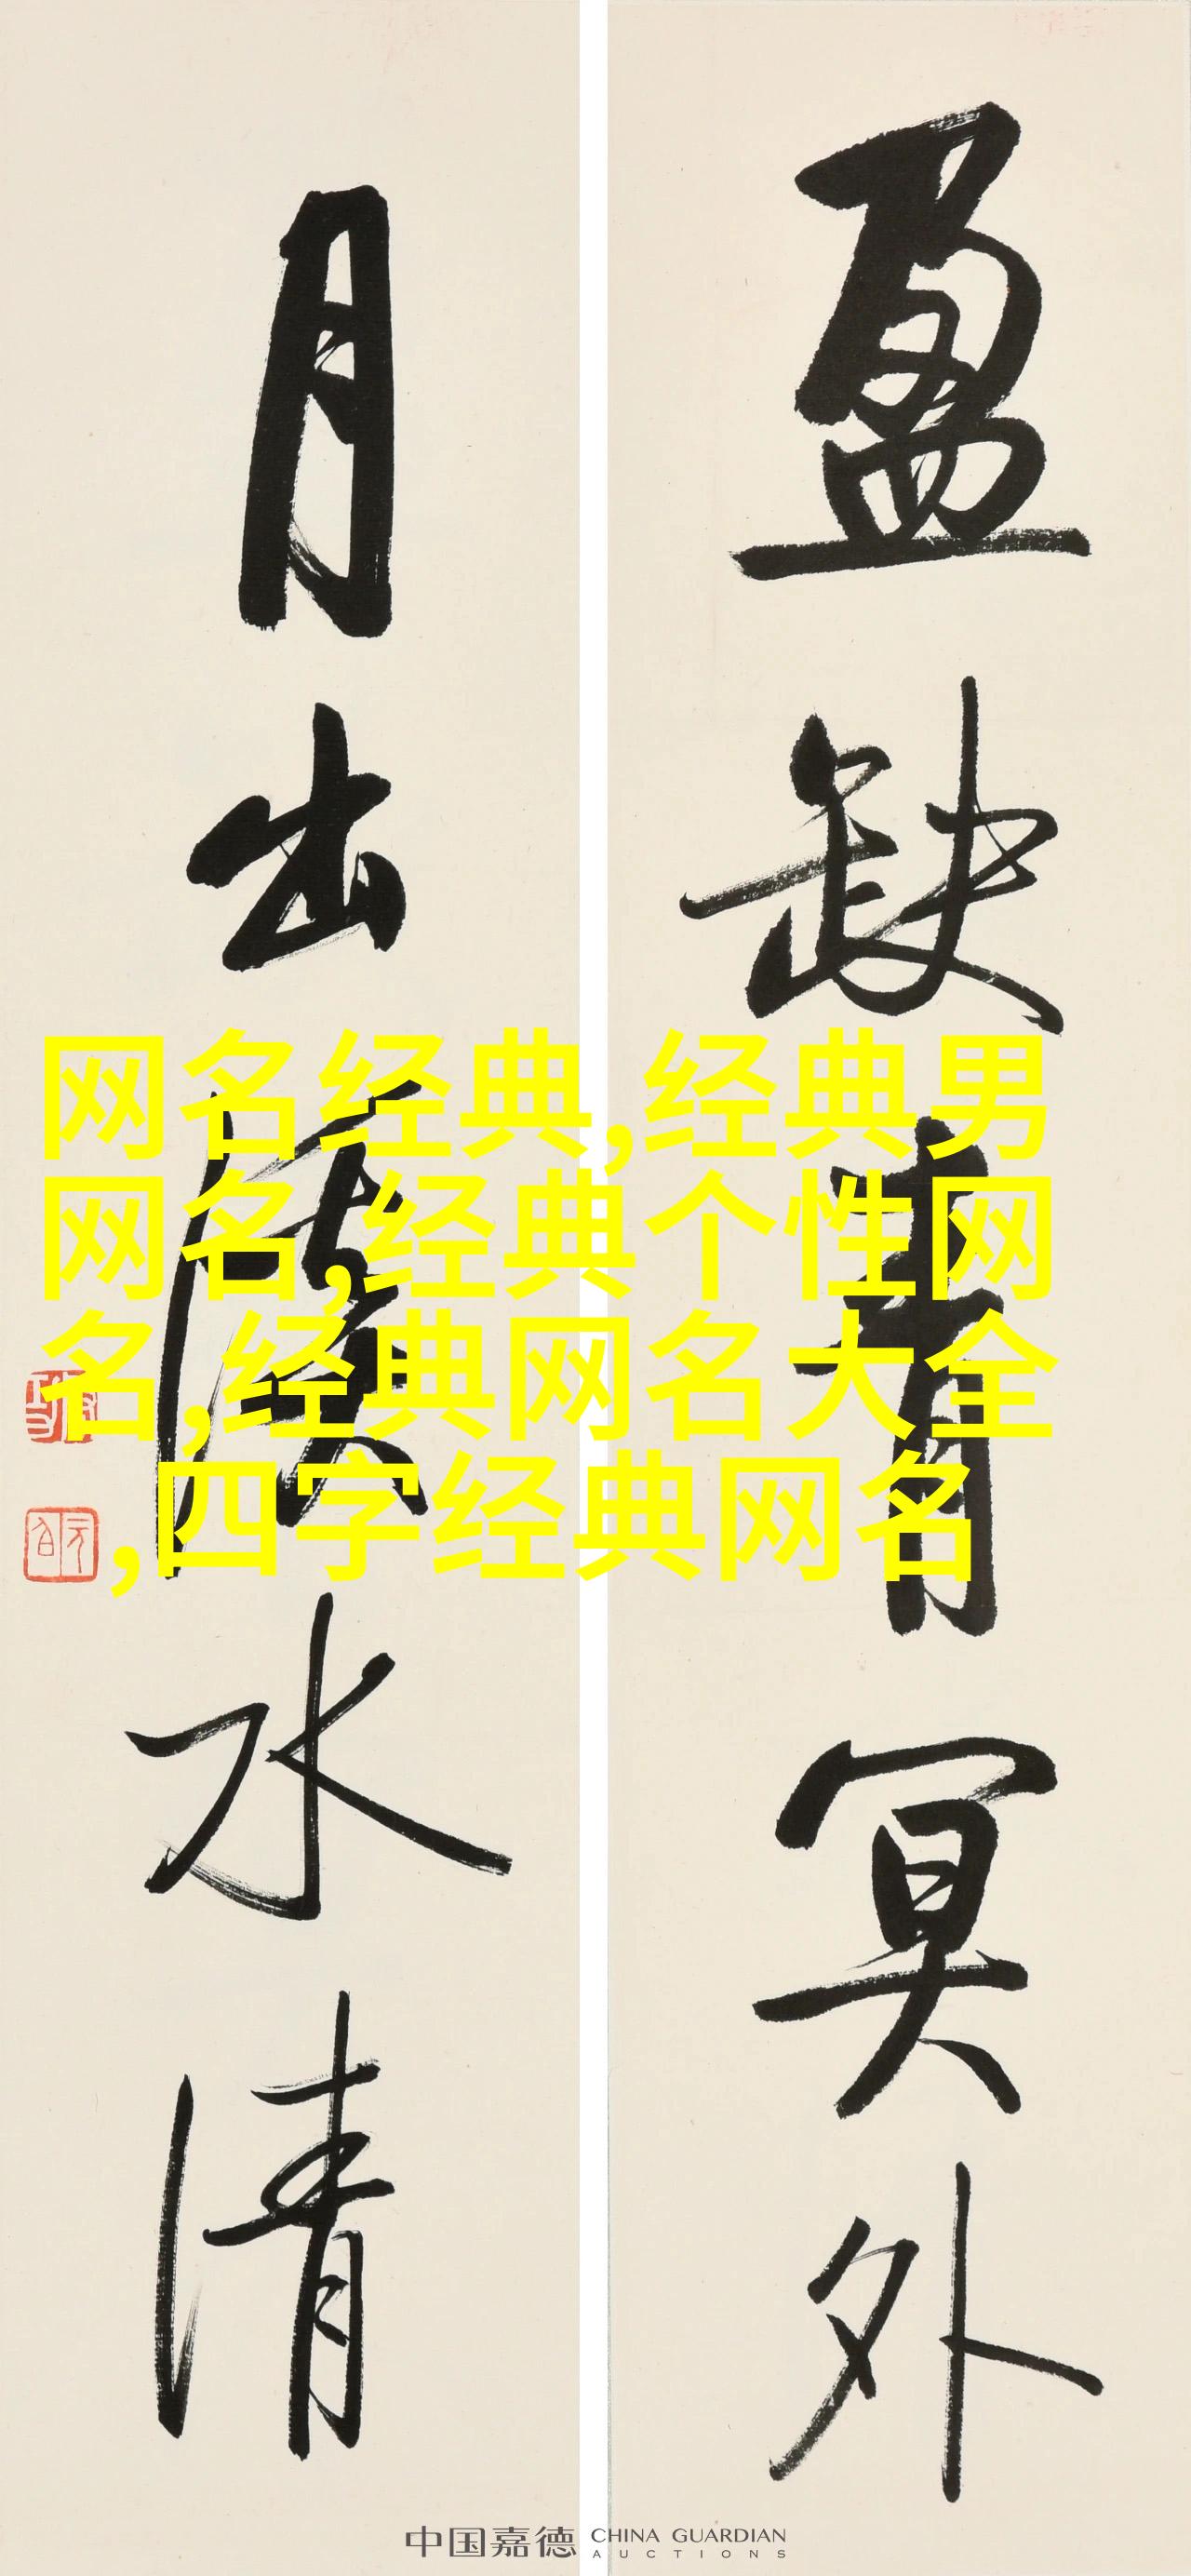 盈缺青冥外
月出溪水清
网名经典,经典男
网名,经典个性网
名,经典网名大全
,四字经典网名
中国嘉德 CHINA GUARDIAN
AUCTIONS